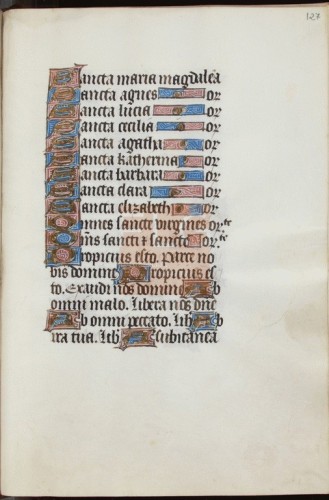 127
Sancta maria magdalea
Sancta agnes or
Sancta lucia or
Sancta cecilia or
Sancta agatha or
Sancta katherina or
Sancta barbara or
Sancta clara or
Sancta elizabeth or
Omnes sancte virgines or.te
Om̄s sancti ⁊ sancte or.te
Propicius esto. Parce no
bis domine Propicius es
to. Exaudi nos domine Ab
omni malo. Libera nos dn̄e
Ab omni peccato. Lib Ab
ira tua. Lib A subitanea